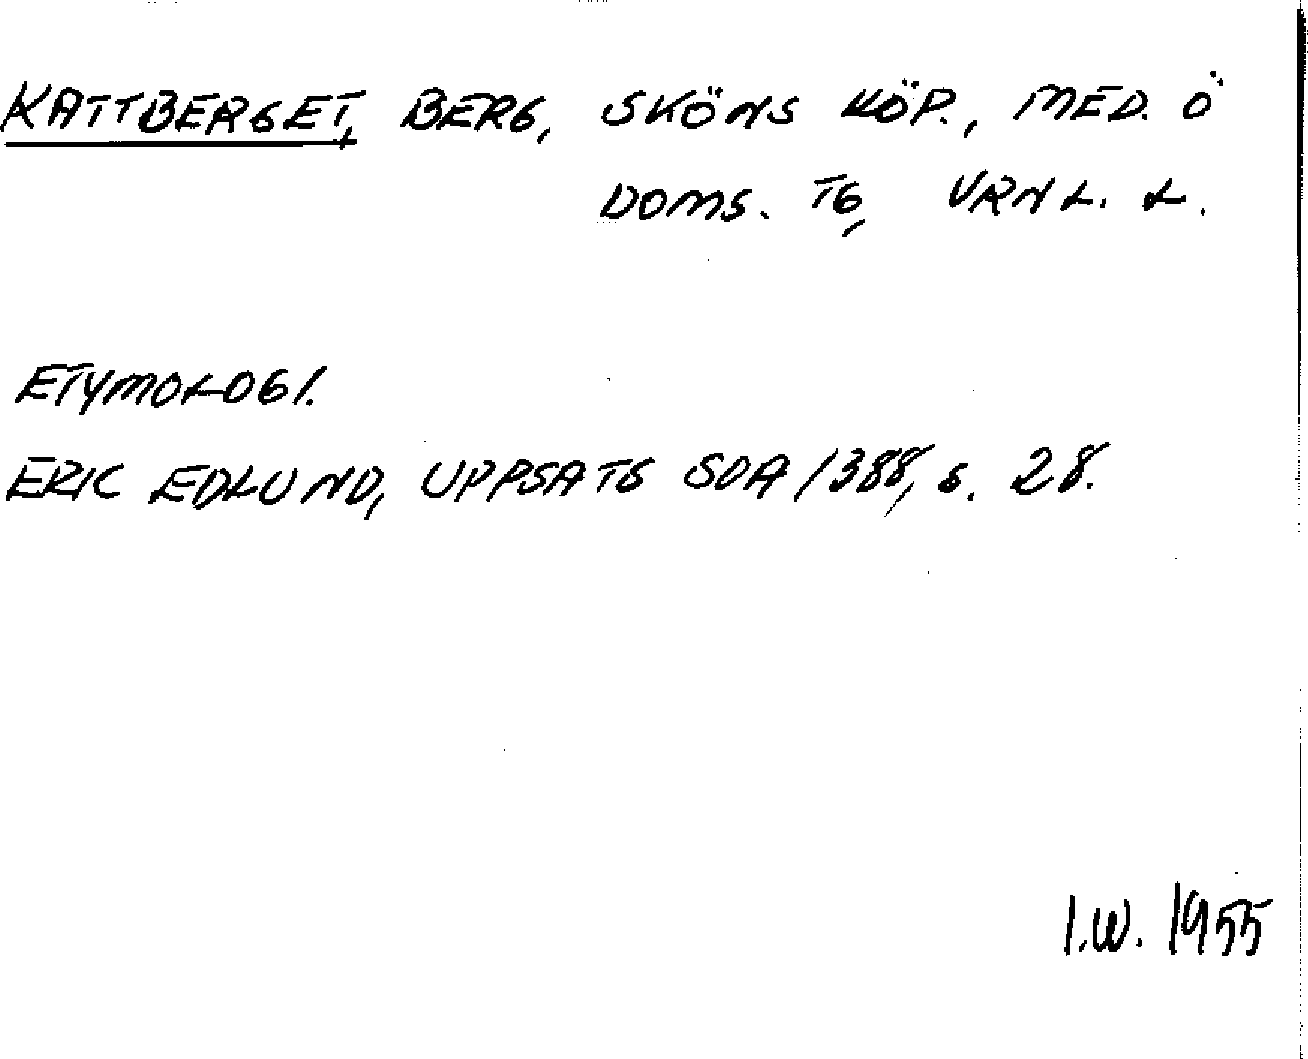 KATTBERGET, BERG, SKÖNS KÖP., MED. Ö
DOMS. TG, VRNL. L.
ETYMOLOGI.
ERIC EDLUND, UPPSATS SOA 1388, s. 28.
I.W. 1955